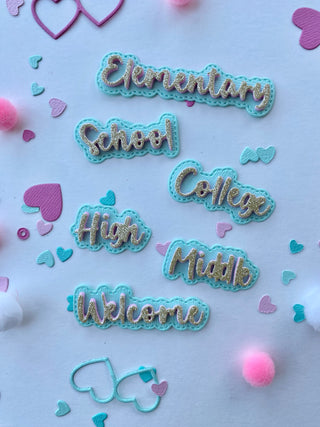 Elementary
School
College
High
Middle
Welcome